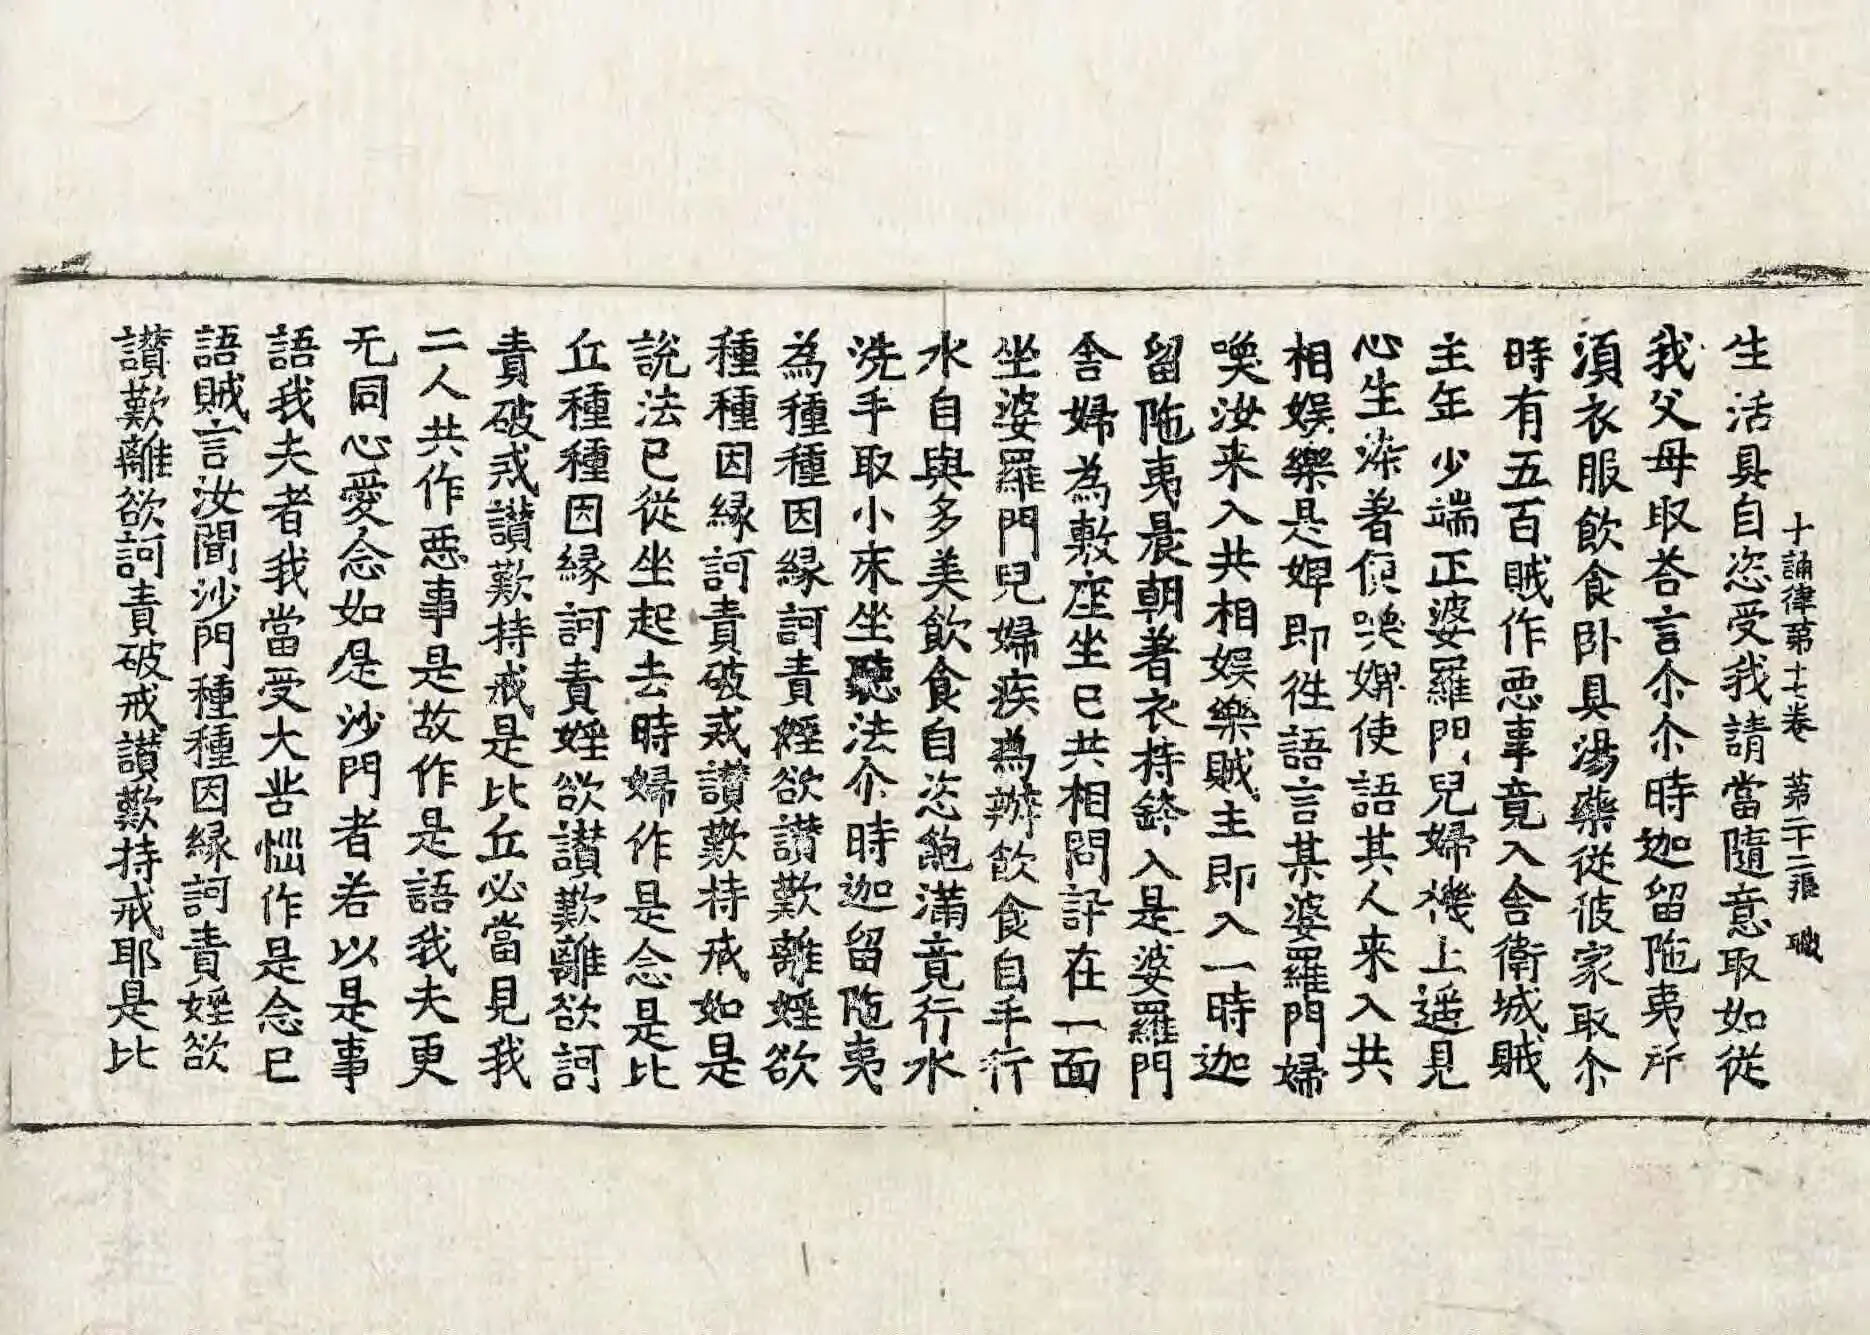 生活具自恣受我請當隨意取如從
十誦律第十七卷 第二十二張 職
我父母取荅言尒尒時迦留陁夷所
須衣服飲食卧具湯藥從彼家取尒
時有五百賊作惡事竟入舍衛城賊
主年少端正婆羅門兒婦機上遥見
心生染著便喚婢使語其人来入共
相娛樂是婢即往語言某婆羅門婦
喚汝来入共相娛樂賊主即入一時迦
留陁夷晨朝著衣持鉢入是婆羅門
舍婦為敷座坐已共相問訊在一面
坐婆羅門兒婦疾為辦飲食自手行
水自與多美飲食自恣飽滿竟行水
洗手取小床坐聽法尒時迦留陁夷
為種種因緣訶責婬欲讚歎離婬欲
種種因緣訶責破戒讚歎持戒如是
說法已從坐起去時婦作是念是比
丘種種因緣訶責婬欲讚歎離欲訶
責破戒讚歎持戒是比丘必當見我
二人共作惡事是故作是語我夫更
无同心愛念如是沙門者若以是事
語我夫者我當受大苦惱作是念已
語賊言汝聞沙門種種因緣訶責婬欲
讚歎離欲訶責破戒讚歎持戒耶是比